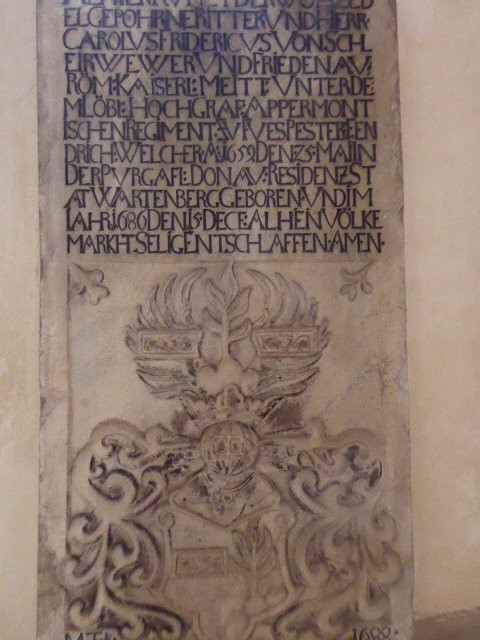 ALHIER RVHET DER WOHL ED
ELGEPOHRNE RITTER VND HERR
CAROLVS FRIDERICVS VON SCH
EIRWEWER VND FRIEDENAV:
RÖM: KAISERL: MEITT: VNTER DE
M LÖBL: HOCHGRAF: APPERMONT
ISCHEN REGIMENT: ZV FVES PESTER FEN
DRICH: WELCHER A: 1659 DEN 25 MAII IN
DER PVRGAFL: DONAV: RESIDENZ ST
AT WARTENBERG GEBOREN VND IM
IAHR 1686 DEN 15 DECE: ALHE IN VÖLKE
MARKHT SELIG ENTSCHLAFFEN AMEN
1688